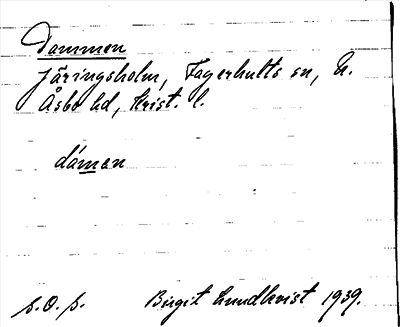 Dammen
Järingsholm, Fagerhults sn, N.
Åsbo hd, Krist. l.
dámen
s.O.s. Birgit Lundkvist 1939.